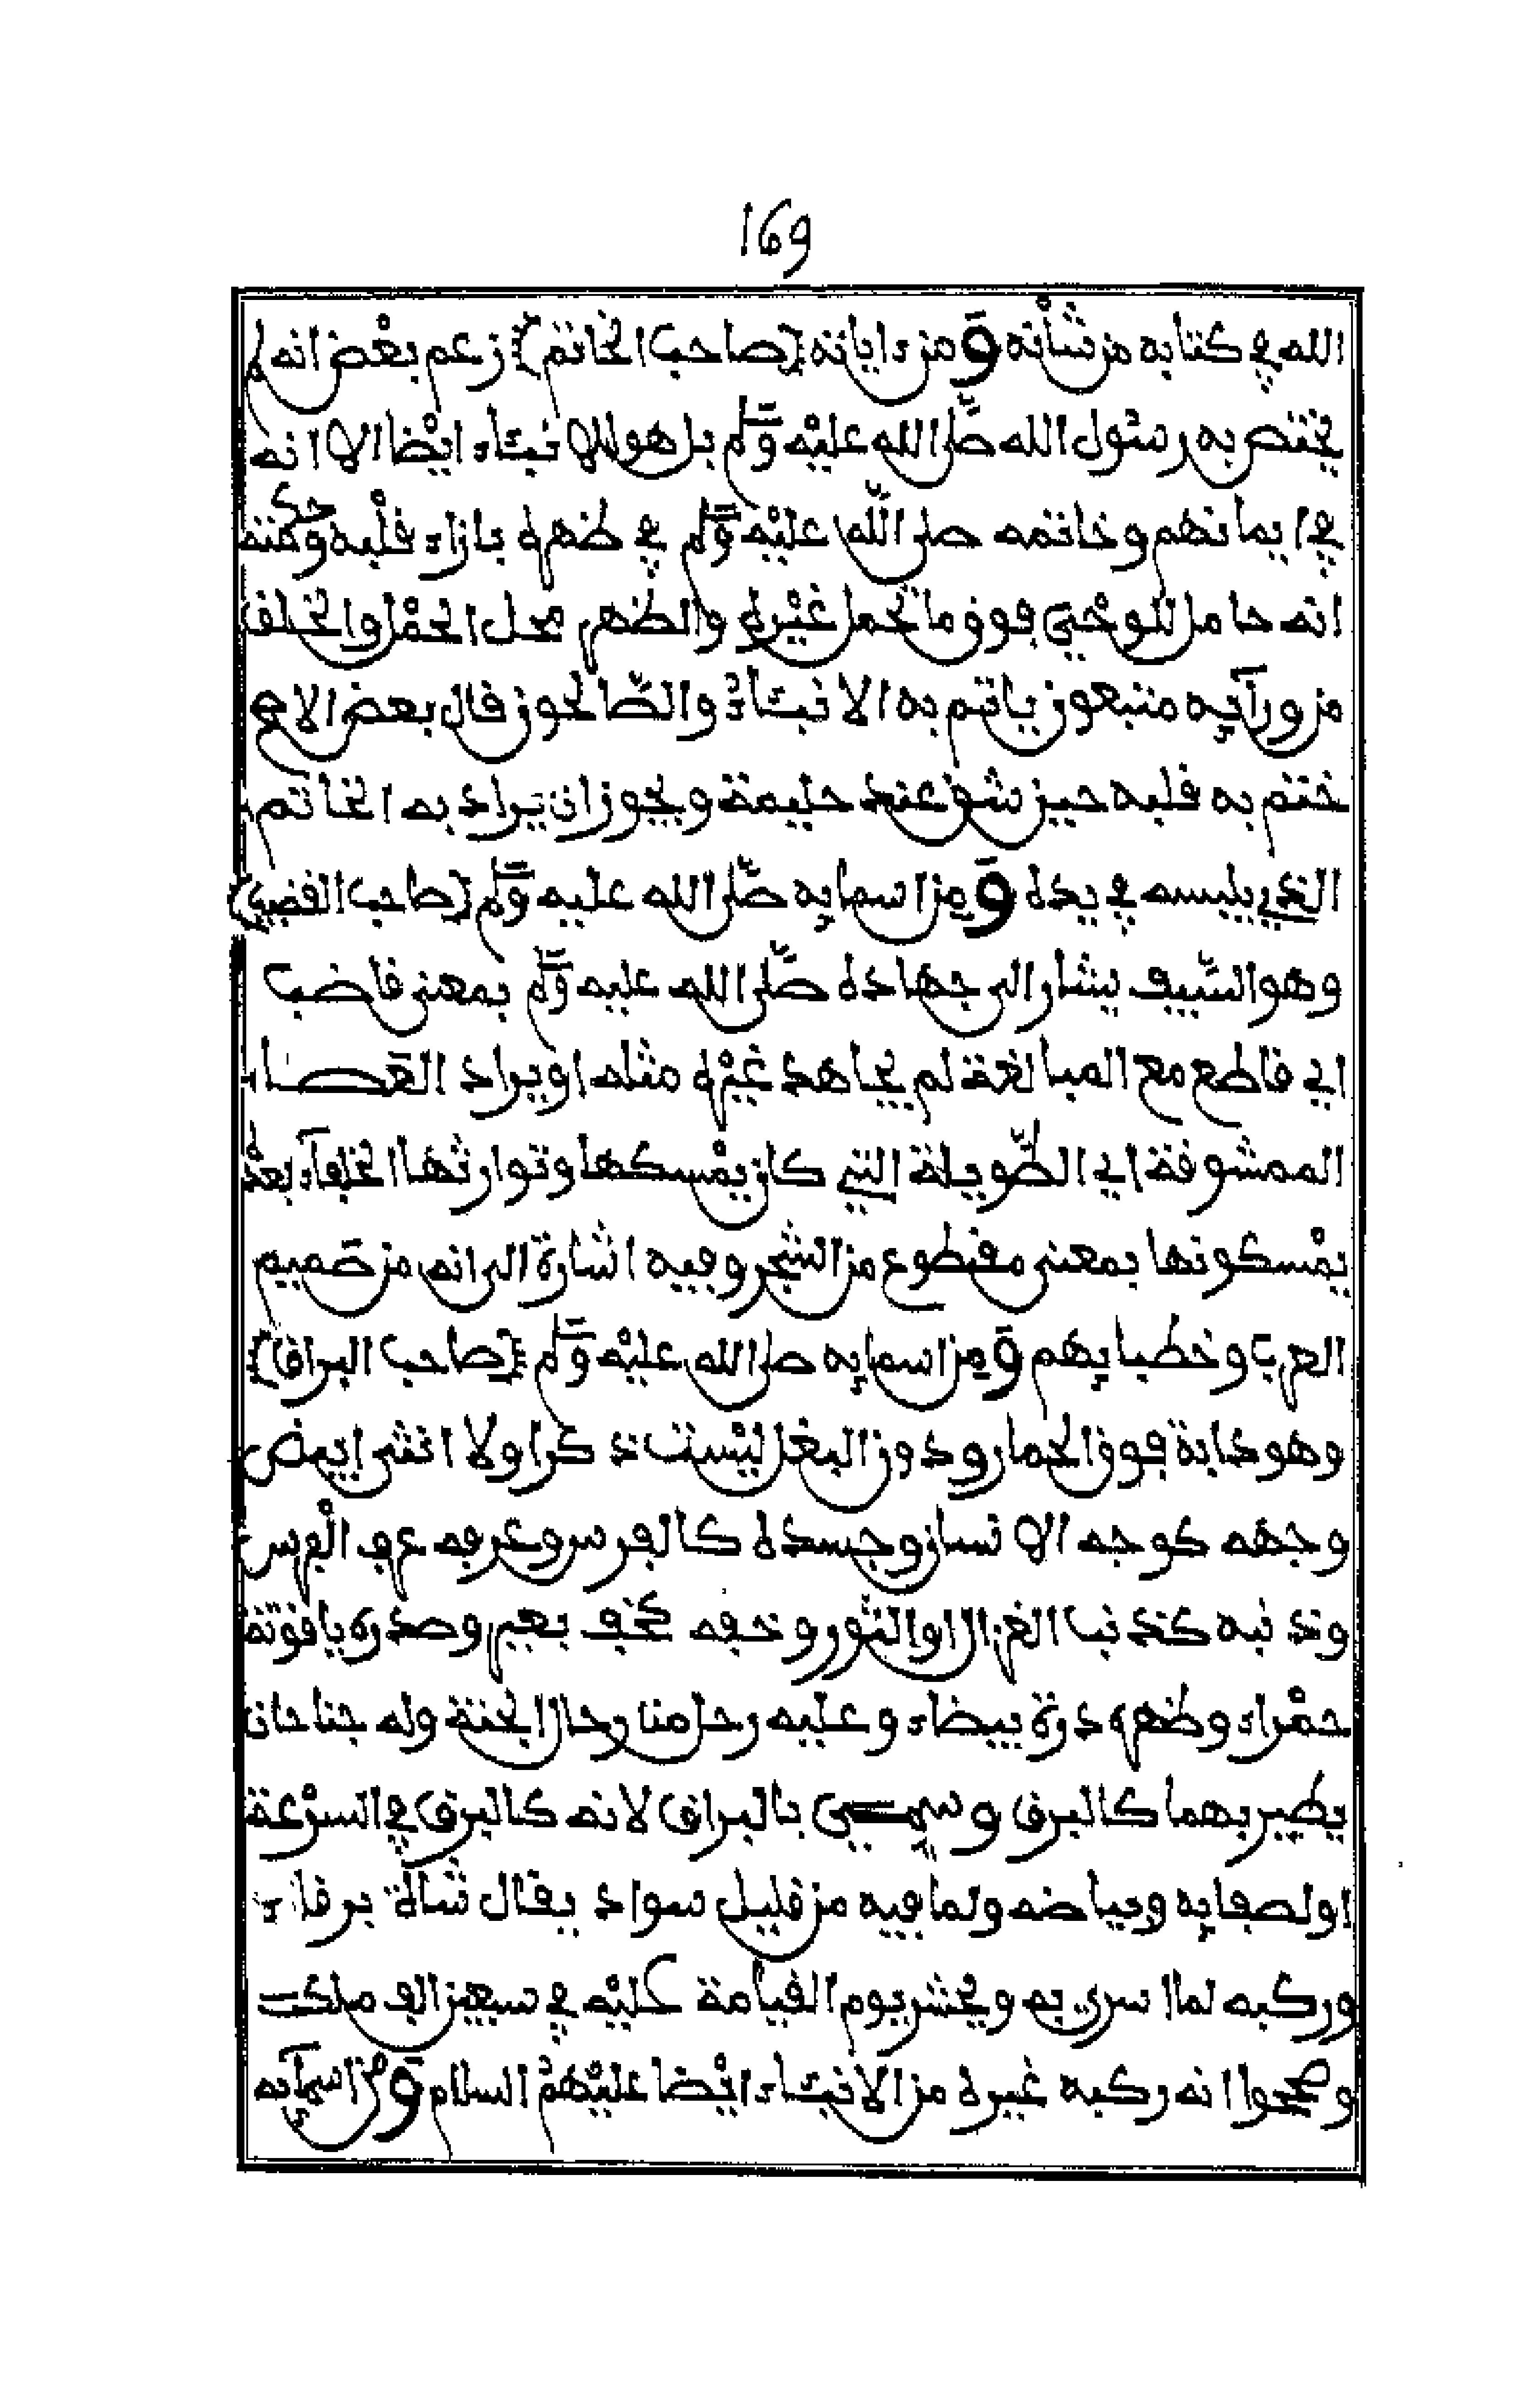 169
الله في كتابه من شأنه ومن ءاياته {صاحب الخاتم} زعم بعض انه لم
يختص به رسول الله صلى الله عليه وسلم بل هو للانبياء ايضا الا انه
في ايمانهم وخاتمه صلى الله عليه وسلم في ظهره بازاء قلبه وحكمته
انه حامل للوحي فوق ما تحمل غيره والظهر محل الحمل والخلف
من ورآيه متبعون ياتم به الانبياء والصالحون قال بعض
ختم به قلبه حين شق عند حليمة ويجوز ان يراد به الخاتم
الذي يلبسه في يده ومن اسمايه صلى الله عليه وسلم {صاحب القضيب}
وهو السيف يشار الى جهاده صلى الله عليه وسلم بمعنى قاضب
اي قاطع مع المبالغة لم يجاهد غيره مثله او يراد العصاء
الممشوقة اي الطويلة التي كان يمسكها وتوارثها الخلفاء بعده
يمسكونها بمعنى مقطوع من الشجر وفيه اشارة الى انه من صميم
العرب وخطبايهم ومن اسمايه صلى الله عليه وسلم {صاحب البراق}
وهو دابة فوق الحمار ودون البغل ليست ذكرا ولا انثى ابيض
وجهه كوجه الانسان وجسده كالفرس وعرفه عرف الفرس
وذنبه كذنب الغزال او الثور وخفه كخف بعير وصدره ياقوتة
حمراء وظهره درة بيضاء وعليه رحل من رحال الجنة وله جناحان
يطير بهما كالبرق وسمي بالبراق لانه كالبرق في السرعة
او لصفايه وبياضه ولما فيه من قليل سواد يقال شاة برقاء
وركبه لما اسري به ويحشر يوم القيامة عليه في سبعين الف ملك
وصححوا انه ركبه غيره من الانبياء ايضا عليهم السلام ومن اسمآيه